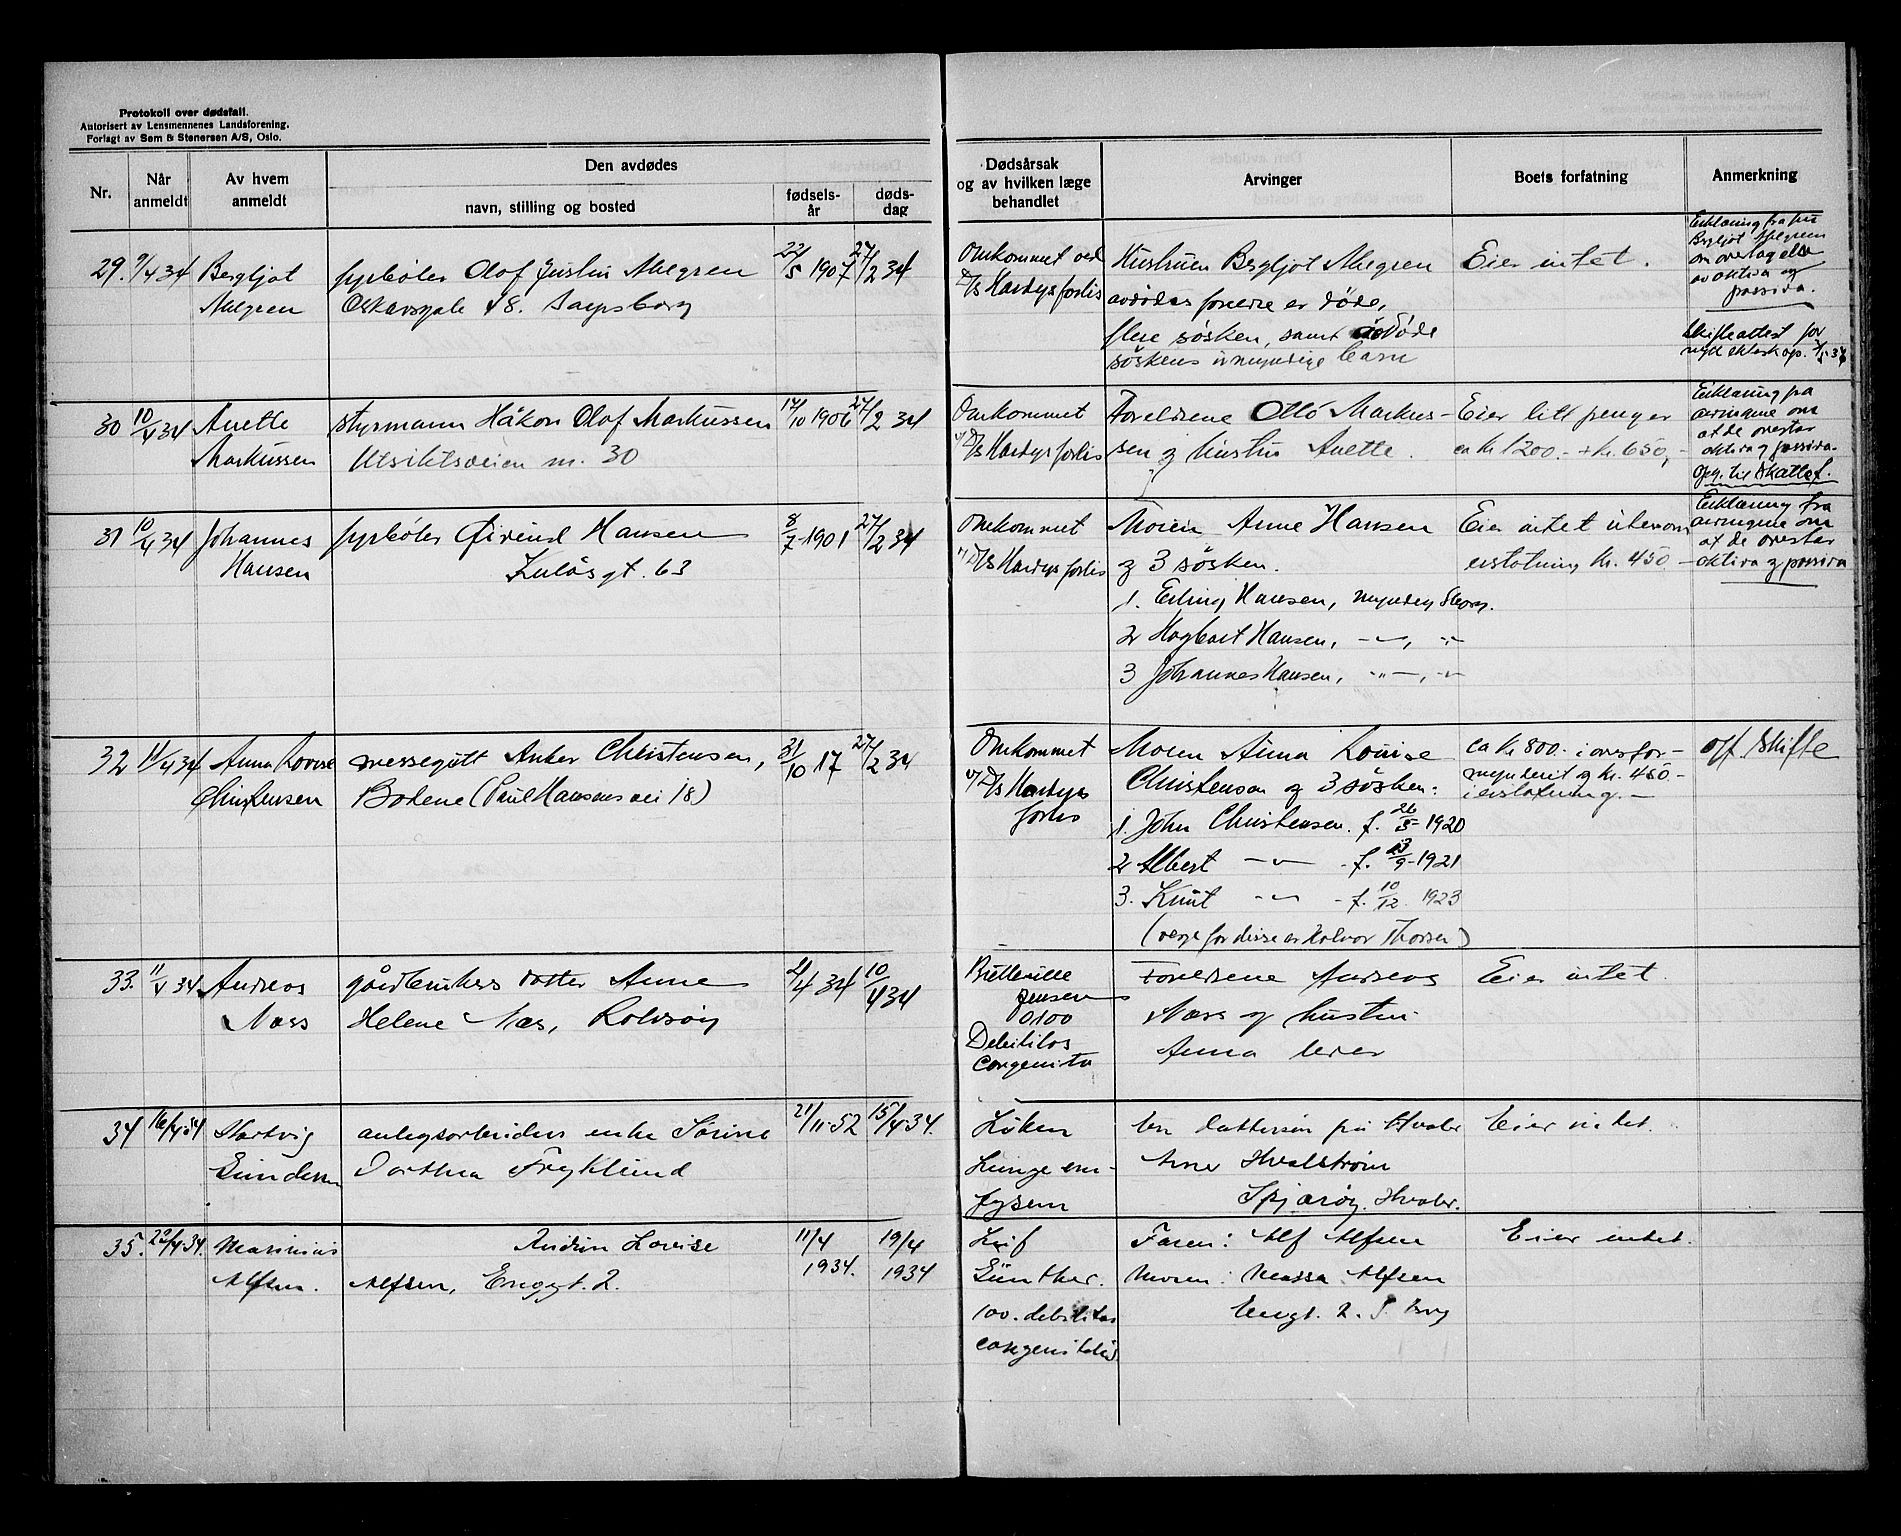 Protokoll over dødsfall.
Autorisert av Lensmennenes Landsforening.
Forlagt av Sem & Stenersen A/S, Oslo.
Nr.
Når anmeldt
Av hvem anmeldt
Den avdødes
navn, stilling og bosted
fødselsår
dødsdag
Dødsårsak og av hvilken læge behandlet
Arvinger
Boets forfatning
Anmerkning
29. 9/4 34 Bergljot fyrbøter Olof Justin Ahlgren 22/5 1907 27/2 34
Ahlgren Oskarsgate 48. Sarpsborg
Omkommet ved
D/S Hardys forlis
Hustruen Bergljot Ahlgren
avdødes foreldre er døde,
flere søsken, samt avdøde
søskens umyndige barn
Eier intet.
Erklæring fra fru
Bergljot Ahlgren
om overtagelse
av aktiva og
passiva.
Skifteattest for
nytt ekteskap.
30 10/4 34 Anette styrmann Håkon Olof Markussen 17/10 1906 27/2 34
Markussen Utsiktsveien nr. 30
Omkommet
v/ D/S Hardys forlis
Foreldrene Otto Markus-
sen og hustru Anette.
Eier litt penger
ca kr 1200.- + kr. 650,-
Erklæring fra
arvingene om
at de overtar
aktiva og passiva.
Opg. til skattef.
31 10/4 34 Johannes fyrbøter Øivind Hansen 8/7 1901 27/2 34
Hansen Kulåsgt. 63
Omkommet
v/ D/S Hardys forlis
Moren Anne Hansen
og 3 søsken.
1. Erling Hansen, myndig Sborg.
2 Hagbart Hansen, -"-, "
3 Johannes Hansen, -"-, "
Eier intet utenom
erstatning kr. 450.-
Erklæring fra
arvingene om
at de overtar
aktiva og passiva
32 11/4 34 Anna Lovise messegutt Anker Christensen, 31/10 17 27/2 34
Christensen Bodene (Paul Hansens vei 18)
Omkommet
v/ D/S Hardys
forlis
Moren Anna Louise
Christensen og 3 søsken:
1. John Christensen. f. 26/5 1920
2 Albert -"- f. 13/9 1921
3. Knut -"- f. 10/12 1923
(verge for disse er Halvor Thorsen)
ca kr 800.- i overfor-
mynderiet og kr. 450-
i erstatning. -
off. skifte
33. 11/4 34 Andreas gårdbrukers datter Anne 4/4 34 10/4 34
Næss Helene Næs, Rolvsøy
Jensen
0100
Debilitas
congenita
Foreldrene Andreas
Næss og hustru
Anna
Eier intet.
34 16/4 34 Hartvig anlegsarbeiders enke Sørine 21/11-52 15/4-34.
Gundersen Dorthea Fryklund
Løken
Lunge em-
fysem
En dattersøn på Hvaler
Arne Hvalstrøm
Spjærøy. Hvaler.
Eier intet.
35. 22/4-34. Marinius Andrin Lovise 11/4 1934. 19/4 1934
Alfsen. Alfsen, Enggt. 2.
Leif
Günther.
100. debilitas
congenitalis
Faren: Alf Alfsen
Moren: Massa Alfsen
Enggt. 2. S. borg
Eier intet.